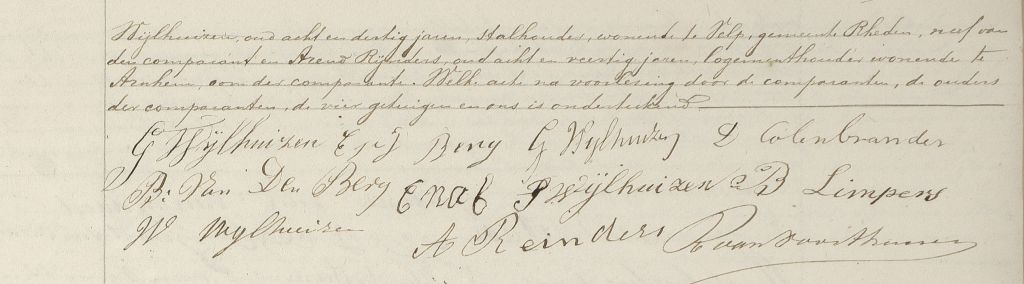 Wijlhuizen, oud acht en dertig jaren, stalhouder, wonende te Velp, gemeente Rheden, neef van
den comparant en Arend Reinders, oud acht en veertig jaren, logementhouder wonende te
Arnhem, oom der comparante. Welke acte na voorlezing door de comparanten, de ouders
der comparanten, de vier getuigen en ons is onderteekend.
G Wijlhuizen E v d Berg G Wijlhuizen D Colenbrander
B. Van Den Berg P Wijlhuizen B Limpers
W Wijlhuizen A Reinders